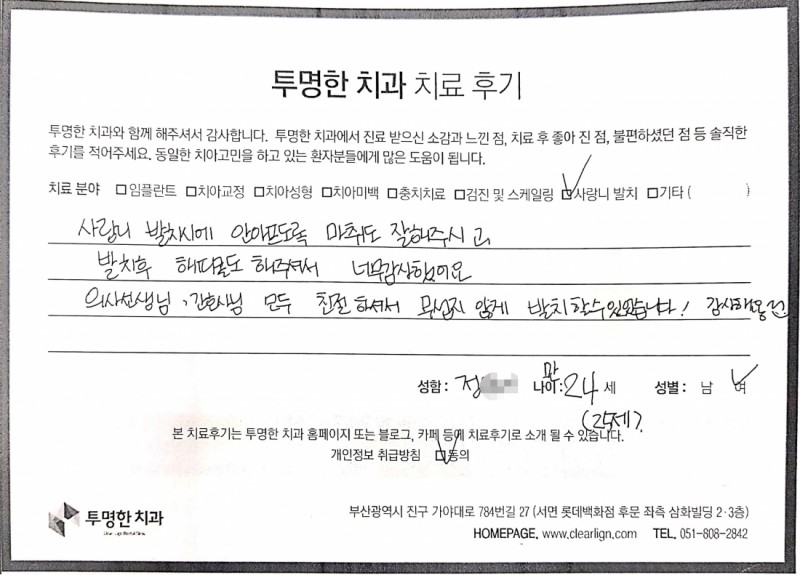 투명한 치과 치료 후기
투명한 치과와 함께 해주셔서 감사합니다. 투명한 치과에서 진료 받으신 소감과 느낀 점, 치료 후 좋아 진 점, 불편하셨던 점 등 솔직한
후기를 적어주세요. 동일한 치아고민을 하고 있는 환자분들에게 많은 도움이 됩니다.
치료 분야 □임플란트 □치아교정 □치아성형 □치아미백 □충치치료 □검진 및 스케일링 ☑사랑니 발치 □기타 ( )
사랑니 발치시에 안아프도록 마취도 잘해주시고,
발치후 해주셔서 너무감사했어요
의사선생님, 간호사님 모두 친절하셔서 무섭지 않게 발치할수있었습니다! 감사해용
성함: 정 나이: 만 24 세 성별: 남 여
(25세?)
본 치료후기는 투명한 치과 홈페이지 또는 블로그, 카페 등에 치료후기로 소개 될 수 있습니다.
개인정보 취급방침 ☑동의
투명한 치과
부산광역시 진구 가야대로 784번길 27 (서면 롯데백화점 후문 좌측 삼화빌딩 2·3층)
HOMEPAGE. www.clearlign.com TEL. 051-808-2842